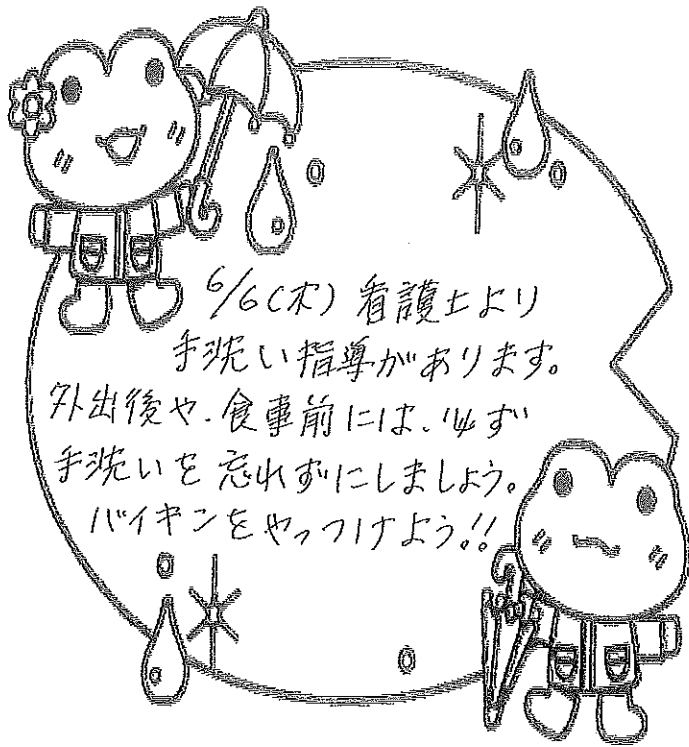 6/6(木) 看護士より
手洗い指導があります。
外出後や、食事前には、必ず
手洗いを忘れずにしましょう。
バイキンをやっつけよう!!